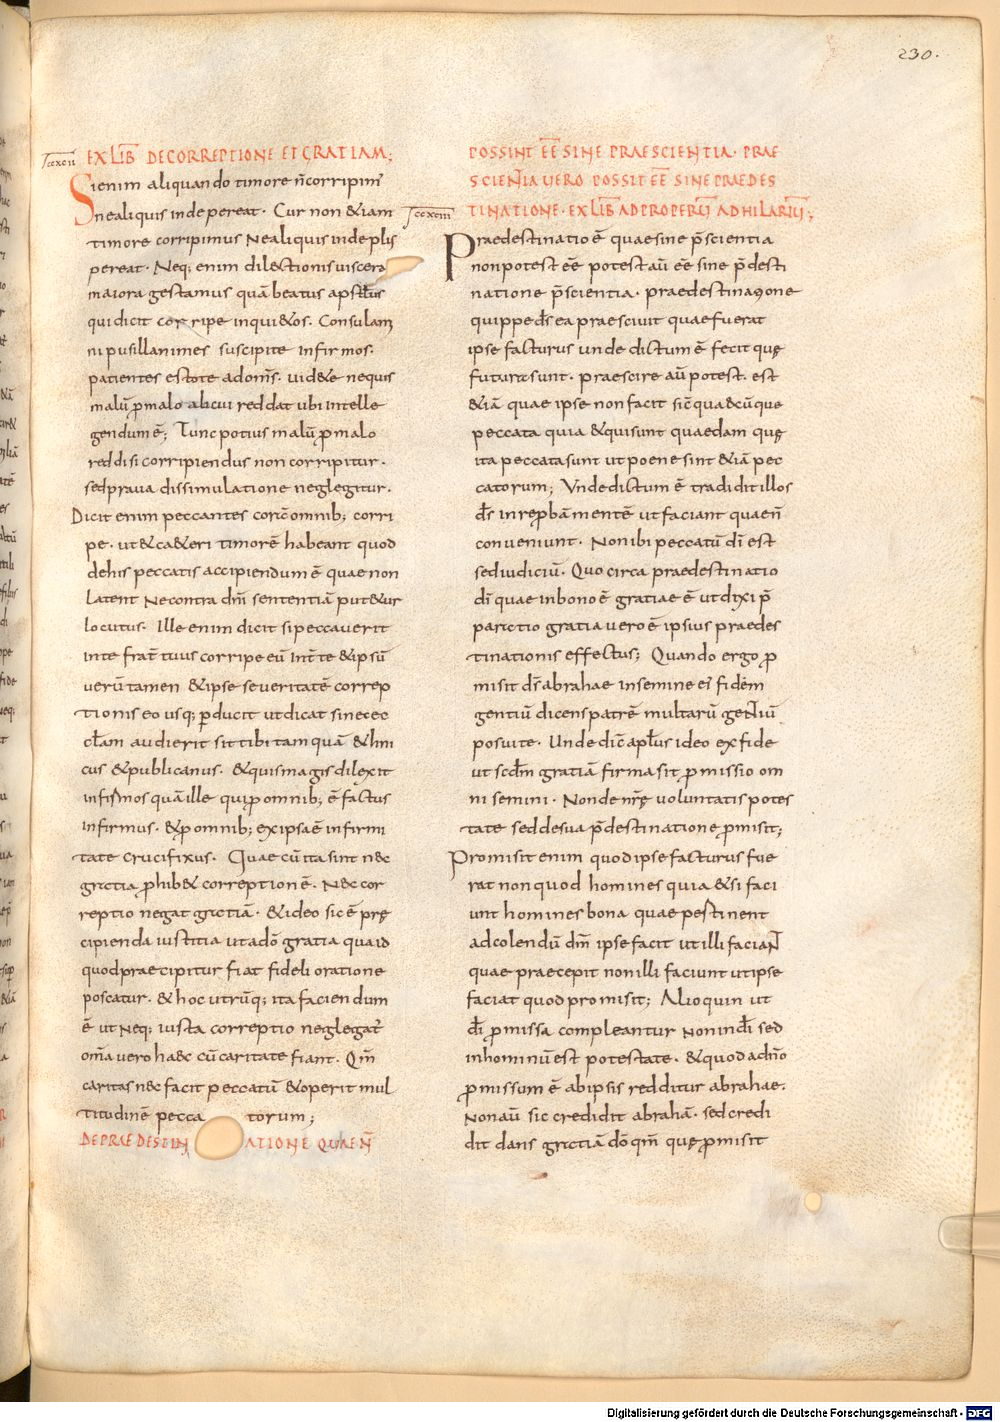 230.
ccxcii EX LIB̅ DE CORREPTIONE ET GRATIAM;
Si enim aliquando timore n̅ corripim̅
ne aliquis inde pereat. Cur non &iam
timore corripimus Ne aliquis inde plus
pereat. Neq; enim dilectionis viscera
maiora gestamus quā beatus apstl̅us
qui dicit corripe inqui&os. Consulam
ni pusillanimes suscipite infirmos.
patientes estote ad om̅s. vid&e nequis
malū p̱ malo alicui reddat ubi intelle
gendum ē; Tunc potius malū p̱ malo
reddi si corripiendus non corripitur.
sed praua dissimulatione neglegitur.
Dicit enim peccantes corā omnib; corri
pe. ut & ca&eri timorē habeant quod
de his peccatis accipiendum ē quae non
latent Ne contra dn̅i sententiā put&ur
locutus. Ille enim dicit si peccauerit
in te frat̅ tuus corripe eū int̅ te & ipsū
verū tamen & ipse seueritatē correp
tionis eo usq; p̱ducit ut dicat si nec ec
cl̅am audierit sit tibi tamquā & hni
cus & publicanus. & quis magis dilexit
infirmos quā ille qui p̱ omnib; ē factus
infirmus. & p̱ omnib; ex ipsa ē infirmi
tate crucifixus. Quae cū ita sint nec
gratia p̱hib& correptionē. Nec cor
reptio negat gratiā. & ideo sic ē prę
cipienda iustitia ut a dō gratia qua id
quod praecipitur fiat fideli oratione
poscatur. & hoc utrūq; ita faciendum
ē ut Neq; iusta correptio neglegat̅
om̅a uero haec cū caritate fiant. Qm̅
caritas nec facit peccatū & operit mul
titudinē peccatorum;
DE PRAEDESTINATIONE QUAE N̅
POSSINT EE̅ SINE PRAESCIENTIA. PRAE
SCIENTIA UERO POSSIT EE̅ SINE PRAEDES
ccxciii TINATIONE. EX LIB̅ AD PROPERŪ AD HILARIŪ;
Praedestinatio ē quae sine p̄scientia
non potest eē potest aū eē sine p̄desti
natione p̄scientia. praedestinatione
quippe ds̅ ea praesciuit quae fuerat
ipse facturus unde dictum ē fecit quę
futura sunt. praescire aū potest. est
&iā quae ipse non facit sic̅ quaecūque
peccata quia & qui sunt quaedam quę
ita peccata sunt ut poene sint &iā pec
catorum; Unde dictum ē tradidit illos
ds̅ in rep̱bā mentē ut faciant quae n̅
conueniunt. Non ibi peccatū di̅ est
sed iudiciū. Quo circa praedestinatio
di̅ quae in bono ē gratiae ē ut dixi p̄
paratio gratia uero ē ipsius praedes
tinationis effectus; Quando ergo p̱
misit ds̅ abrahae in semine ei' fidēm
gentiū dicens patrē multarū gentiū
posui te. Unde dic̅ apl̅us ideo ex fide
ut scdm̅ gratiā firma sit p̱missio om
ni semini. Non de nr̅ę uoluntatis potes
tate sed de sua p̄destinatione p̱misit;
Promisit enim quod ipse facturus fue
rat non quod homines quia & si faci
unt homines bona quae pertinent
ad colendū dm̅ ipse facit ut illi faciant
quae praecepit non illi faciunt ut ipse
faciat quod promisit; Alioquin ut
di̅ p̱missa compleantur non in di̅ sed
in hominū est potestate. & quod a dn̅o
p̱missum ē ab ipsis redditur abrahae.
Non aū sic credidit abrahā. sed credi
dit dans gratiā dō qm̅ quę p̱misit
Digitalisierung gefördert durch die Deutsche Forschungsgemeinschaft - DFG